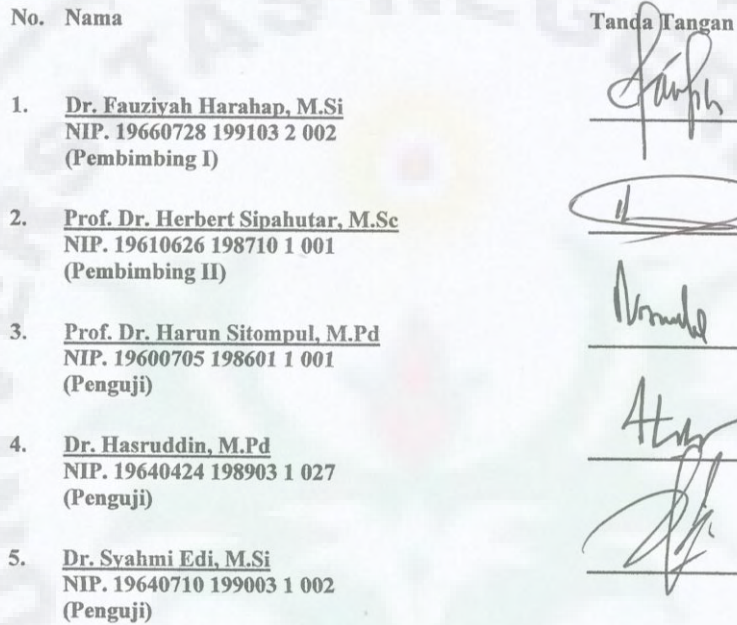 No. Nama Tanda Tangan
1. Dr. Fauziyah Harahap, M.Si
NIP. 19660728 199103 2 002
(Pembimbing I)
2. Prof. Dr. Herbert Sipahutar, M.Sc
NIP. 19610626 198710 1 001
(Pembimbing II)
3. Prof. Dr. Harun Sitompul, M.Pd
NIP. 19600705 198601 1 001
(Penguji)
4. Dr. Hasruddin, M.Pd
NIP. 19640424 198903 1 027
(Penguji)
5. Dr. Syahmi Edi, M.Si
NIP. 19640710 199003 1 002
(Penguji)